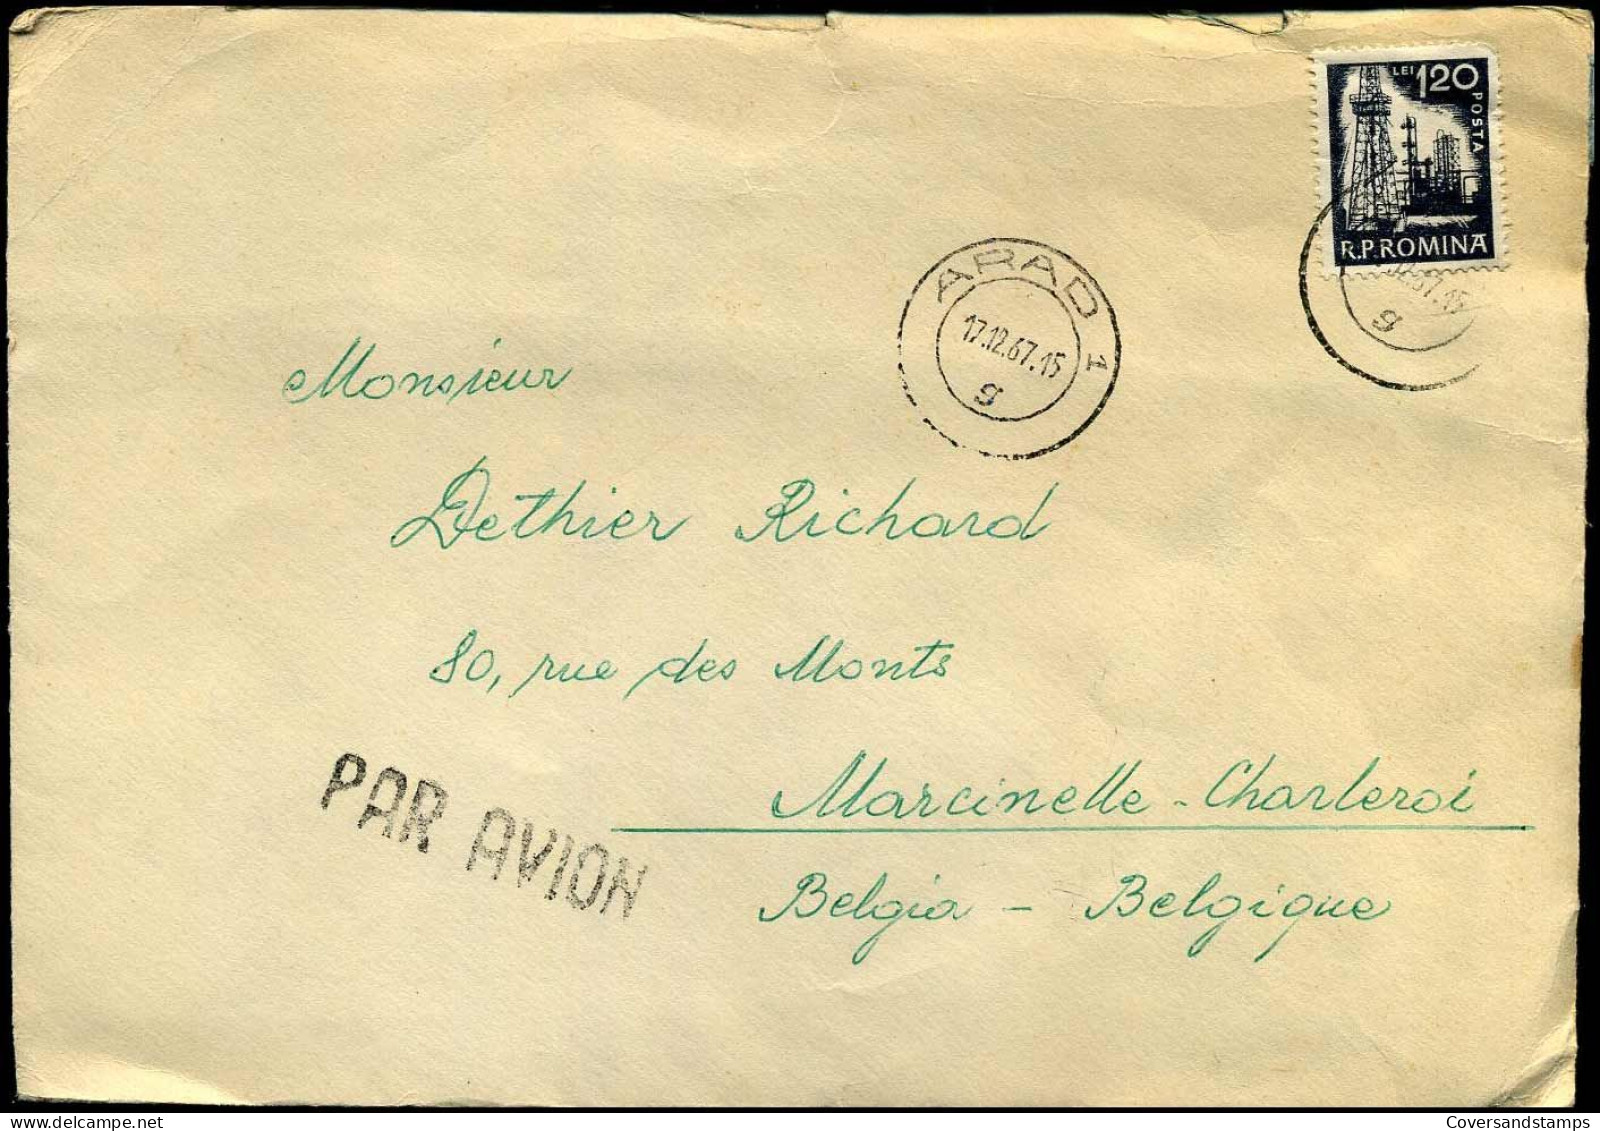 LEI 120
POSTA
R.P.ROMINA
ARAD 1
17.12.67.15
g
12.67.15
g
Monsieur
Dethier Richard
80, rue des Monts
Marcinelle - Charleroi
Belgia - Belgique
PAR AVION
CoversandStamps